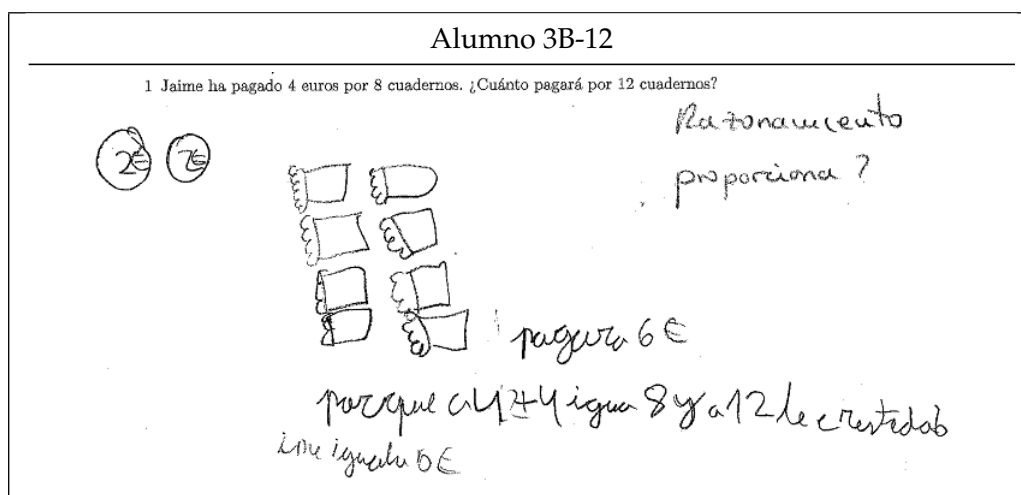 Alumno 3B-12
1 Jaime ha pagado 4 euros por 8 cuadernos. ¿Cuánto pagará por 12 cuadernos?
Razonamiento
proporciona ?
2€ 2€
pagara 6 €
porque a 4 + 4 igua 8 y a 12 le e restado 6
i me iguala 6 €